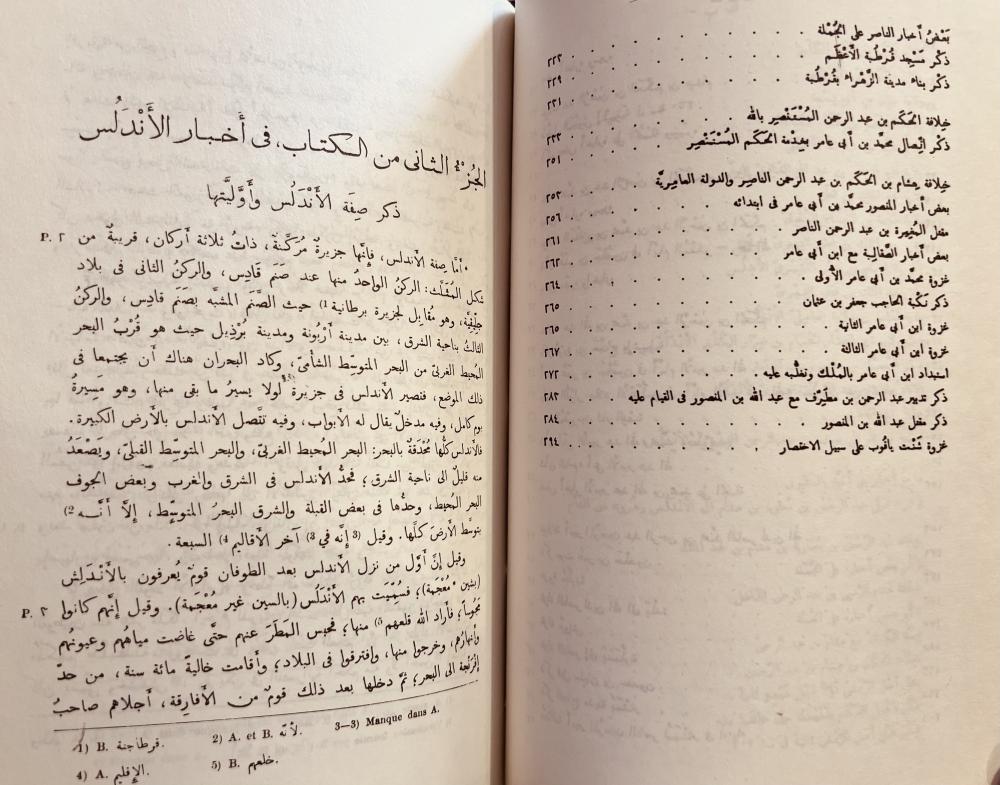 بَعْضُ أخبار الناصر على الجُمْلة . . . . . . . . ٢٢٣
ذكر مَسْجِد قُرْطُبة الأَعْظَم . . . . . . . . ٢٢٩
ذكر بناء مدينة الزَّهْراء بقُرْطُبة . . . . . . . ٢٣١
خِلافة الحَكَم بن عبد الرحمن المُسْتَنْصِر بالله . . . . . ٢٣٣
ذكر اتّصال محمَّد بن أبى عامر بخِدْمة الحَكَم المُسْتَنْصِر . . . . ٢٥١
خِلافة هِشام بن الحَكَم بن عبد الرحمن الناصِر والدولة العامِريَّة . . ٢٥٣
بعض أخبار المنصور محمَّد بن أبى عامر فى ابتدائه . . . . . ٢٥٦
مقتل المُغِيرة بن عبد الرحمن الناصر . . . . . . ٢٦١
بعض أخبار الصَّقالِبة مع ابن أبى عامر . . . . . . ٢٦٢
غزوة محمَّد بن أبى عامر الأُولى . . . . . . . ٢٦٤
ذكر نَكْبة الحاجب جعفر بن عثمان . . . . . . ٢٦٥
غزوة ابن أبى عامر الثانية . . . . . . . . ٢٦٥
غزوة ابن أبى عامر الثالثة . . . . . . . . ٢٦٧
استبداد ابن أبى عامر بالمُلْك وتغلُّبه عليه . . . . . . ٢٧٢
ذكر تدبير عبد الرحمن بن مطَرِّف مع عبد الله بن المنصور فى القيام عليه . ٢٨٣
ذكر مقتل عبد الله بن المنصور . . . . . . . ٢٨٤
غزوة شَنْت ياقُوب على سبيل الاختصار . . . . . . ٢٩٤
الجُزْءُ الثانى من الكتاب، فى أخبار الأَنْدَلُس
ذكر صِفَة الأَنْدَلُس وأَوَّليَّتها
P. ٢ أمّا صفة الأندلس، فإنّها جزيرةٌ مُركَّنةٌ، ذاتُ ثلاثة أركان، قريبةٌ من
شكل المُثلَّث: الركنُ الواحدُ منها عند صَنَم قادِس، والركنُ الثانى فى بلاد
جِلِّيقِيَّة، وهو مُقابل لجزيرة برطانية (1 حيث الصَّنَم المشبَّه بصَنَم قادِس، والركنُ
الثالثُ بناحية الشرق، بين مدينة أَرْبُونة ومدينة بُرْذِيل حيث هو قُرْبُ البحر
المُحيط الغربىّ من البحر المتوسِّط الشأمىّ، وكاد البحران هناك أن يجتمعا فى
ذلك الموضع، فتصير الأندلس فى جزيرة، لولا يسيرُ ما بقى منها، وهو مَسِيرةُ
يوم كامل، وفيه مدخلٌ يقال له الأبواب، وفيه تتَّصل الأندلس بالأرض الكبيرة.
فالأندلس كلُّها مُحْدَقةٌ بالبحر: البحر المُحيط الغربىّ، والبحر المتوسِّط القبلىّ، ويَصْعَدُ
منه قليلٌ الى ناحية الشرق؛ فحدُّ الأندلس فى الشرق والغرب وبَعْض الجوف
البحر المُحيط، وحدُّها فى بعض القبلة والشرق البحرُ المتوسِّط، إلّا أنَّه (2
يتوسَّط الأرض كلَّها. وقيل (3 إنَّه فى (3 آخر الأقاليم (4 السبعة.
وقيل إنّ أوّل من نزل الأندلس بعد الطوفان قومٌ يُعرفون بالأَنْدَلِش
P. ٣ (بشين مُعْجَمة)؛ فسُمِّيَت بهم الأَنْدَلُس (بالسين غير مُعْجَمة). وقيل إنَّهم كانوا
مَجُوسًا؛ فأراد الله قلعهم (5 منها؛ فحبس المَطَرَ عنهم حتَّى غاضت مياهُهم وعيونُهم
وأنهارُهم، وخرجوا منها، وافترقوا فى البلاد؛ وأقامت خاليةً مائة سنة، من حدّ
إفْرَنْجة الى البحر؛ ثمّ دخلها بعد ذلك قومٌ من الأَفارِقة، أجلاهم صاحبُ
1) B. قرطاجنة. 2) A. et B. لأنّه. 3—3) Manque dans A.
4) A. الإقليم. 5) B. خلعهم.